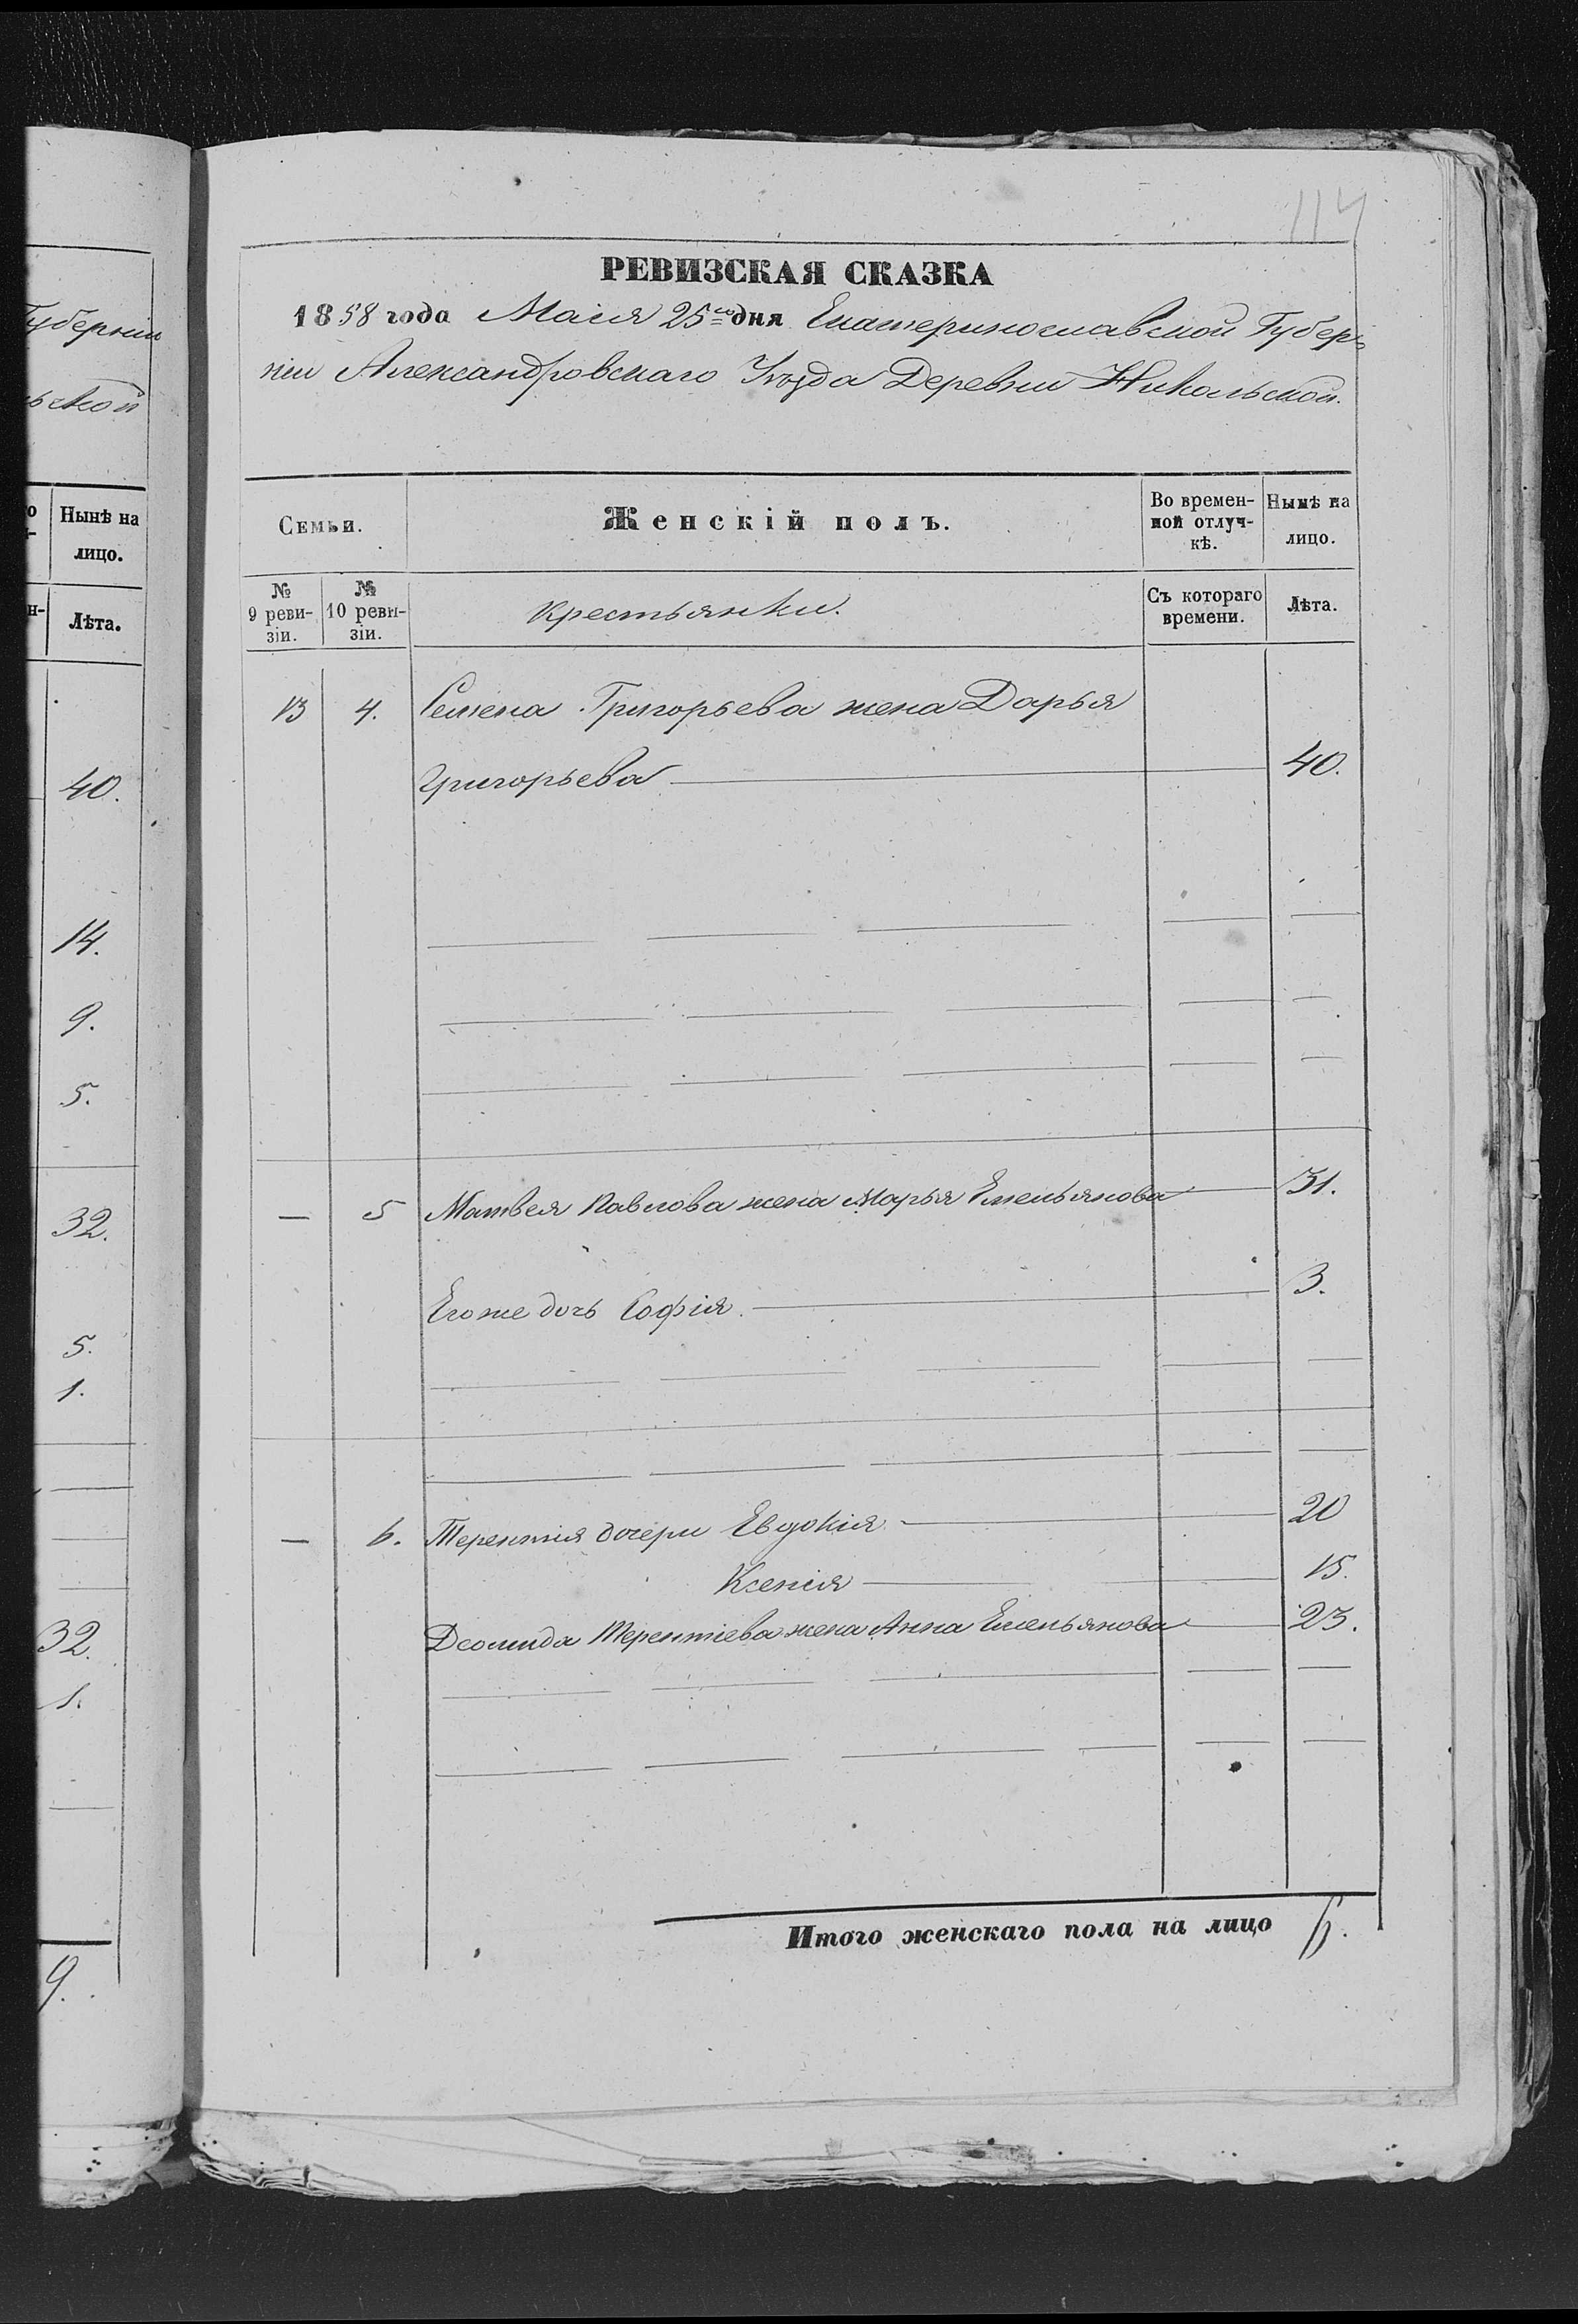 Губерніи
ьской
о
Нынѣ на
лицо.
н-
Лѣта.
40.
14.
9.
5.
32.
5.
1.
32.
1.
9.
114
РЕВИЗСКАЯ СКАЗКА
1858 года Маія 25го дня Екатеринославской Губер
ніи Александровскаго Уѣзда Деревни Никольской.
Семьи.
Женскій полъ.
Во времен-
ной отлуч-
кѣ.
Нынѣ на
лицо.
№
9 реви-
зіи.
№
10 реви-
зіи.
Крестьянки.
Съ котораго
времени.
Лѣта.
13 4. Семена Григорьева жена Дарья
Григорьева 40.
— 5 Матвея Павлова жена Марья Емельянова 31.
Его же дочь Софія. 3.
— 6. Терентія дочери Евдокія 20
Ксенія 15.
Деомида Терентіева жена Анна Емельянова 23.
Итого женскаго пола на лицо 6.